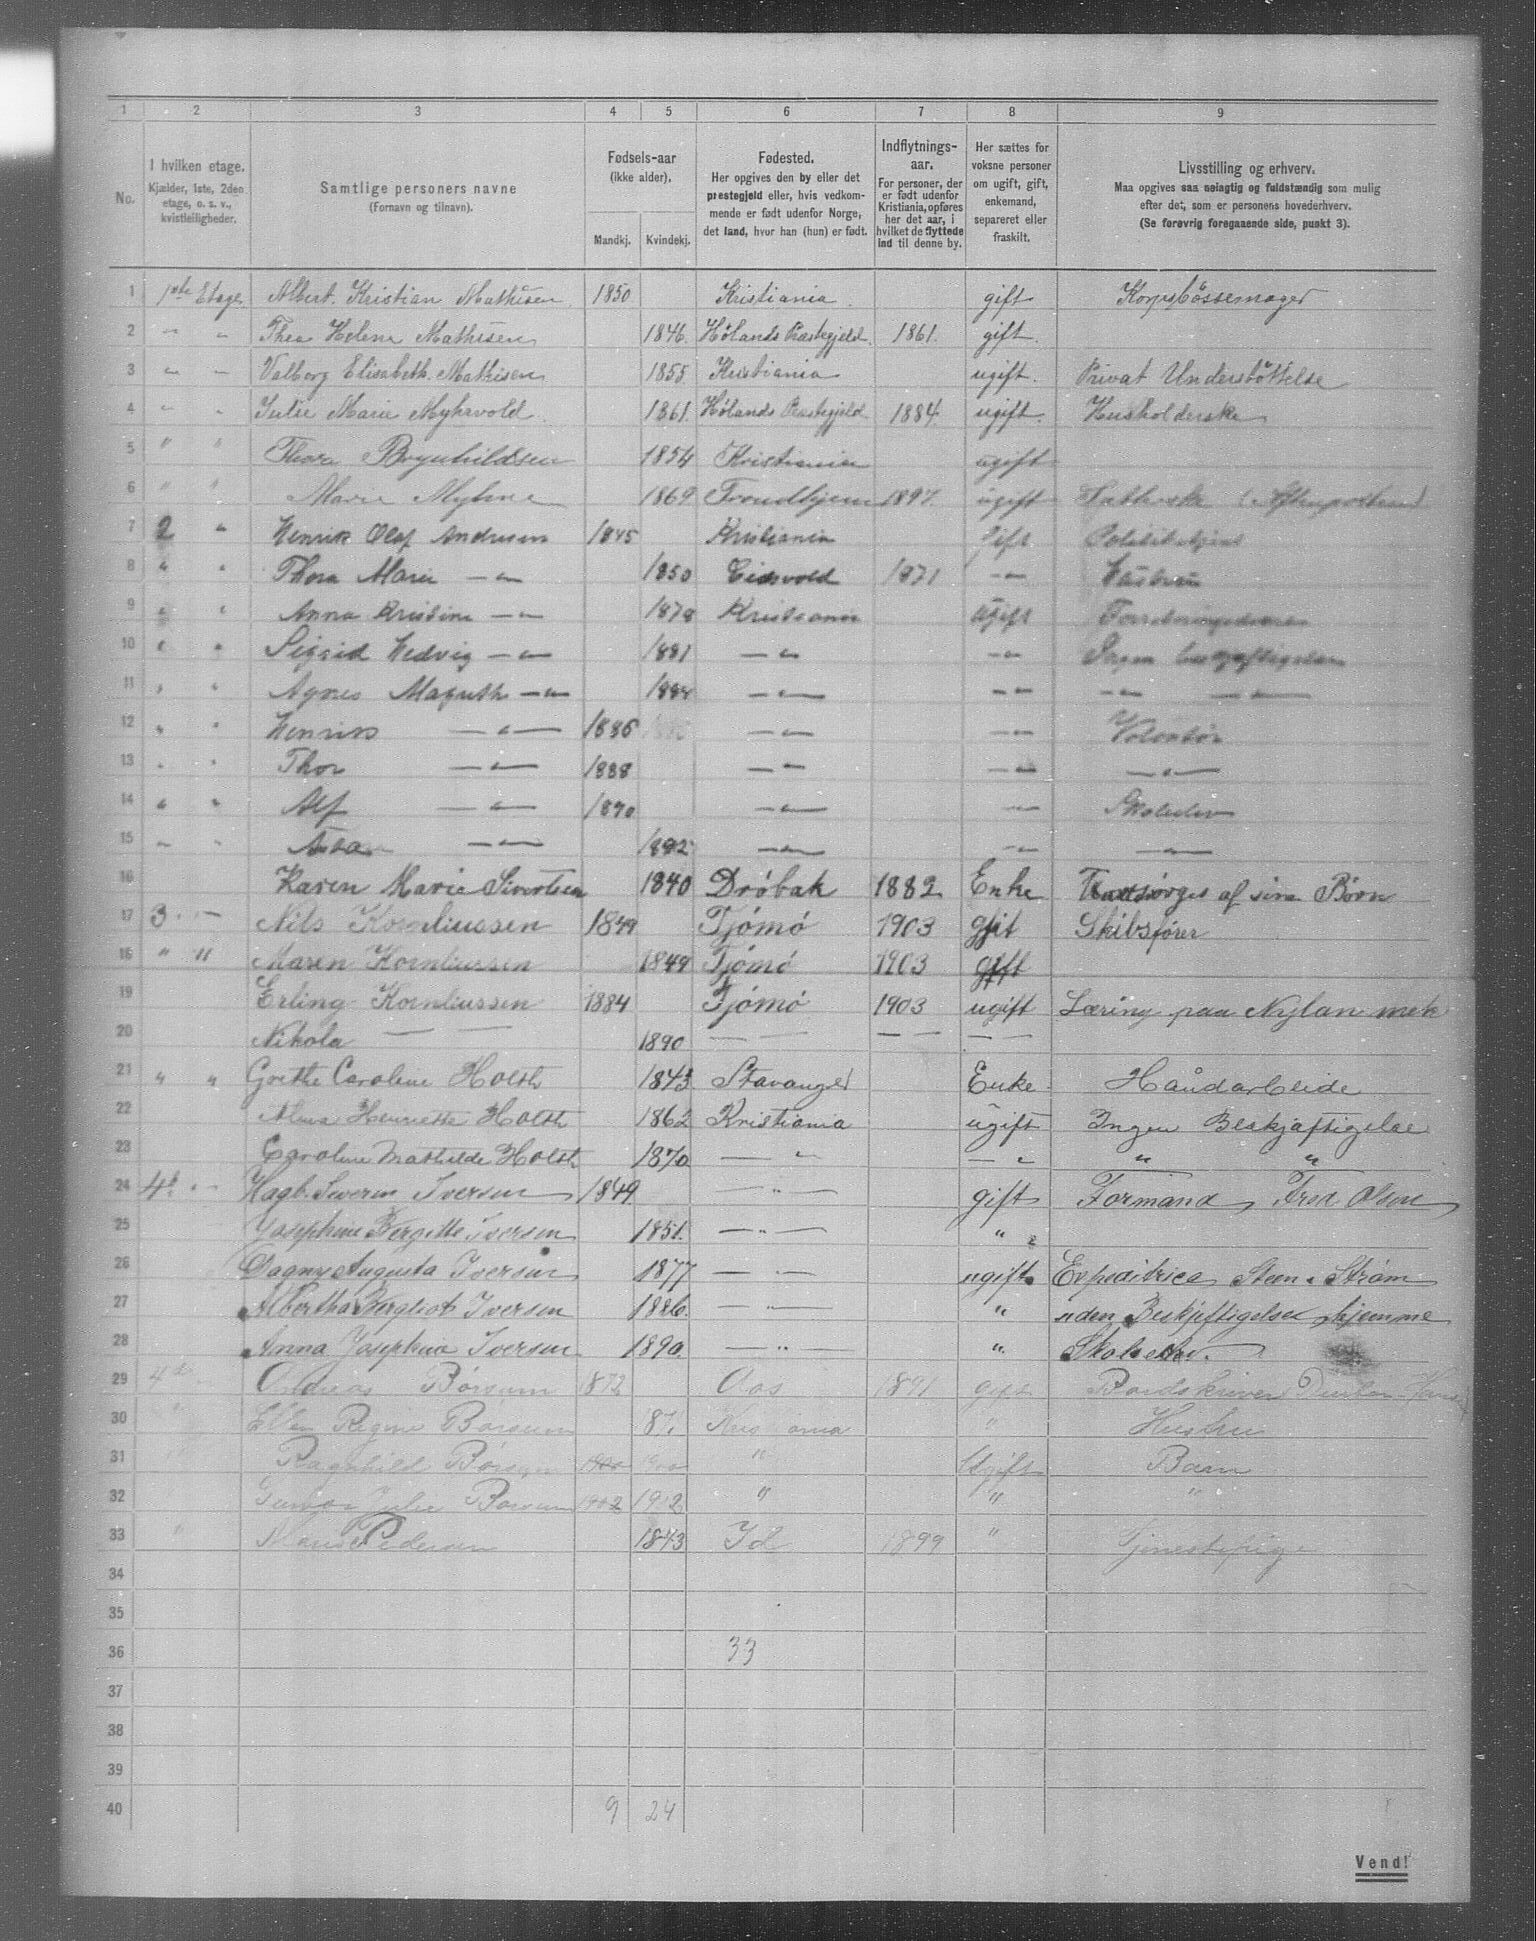 1 2 3 4 5 6 7 8 9
No.
I hvilken etage.
Kjælder, 1ste, 2den
etage, o. s. v.,
kvistleiligheder.
Samtlige personers navne
(Fornavn og tilnavn).
Fødsels-aar
(ikke alder).
Mandkj. Kvindekj.
Fødested.
Her opgives den by eller det
prestegjeld eller, hvis vedkom-
mende er født udenfor Norge,
det land, hvor han (hun) er født.
Indflytnings-
aar.
For personer, der
er født udenfor
Kristiania, opføres
her det aar, i
hvilket de flyttede
ind til denne by.
Her sættes for
voksne personer
om ugift, gift,
enkemand,
separeret eller
fraskilt.
Livsstilling og erhverv.
Maa opgives saa nøiagtig og fuldstændig som mulig
efter det, som er personens hovederhverv.
(Se forøvrig foregaaende side, punkt 3).
1 1ste Etage Albert Kristian Mathisen 1850 Kristiania gift Korpsbøssemager
2 " " Thea Helene Mathisen 1846. Hølands Præstegjeld. 1861. gift.
3 " " Valborg Elisabeth Mathisen 1855 Kristiania ugift. Privat Understøttelse
4 " " Julie Marie Myhrvold 1861. Hølands Præstegjeld 1884. ugift. Husholderske
5 " " Thora Brynhildsen 1854 Kristiania ugift
6 " " Marie Myhre 1869 Trondhjem 1897. ugift (Aftenposten)
7 2 " Henrik Olaf Andresen 1845 Kristiania gift
8 " " Thora Marie — " — 1850 Eidsvold 1871 — " — Hustru
9 " " Anna Kristine — " — 1878 Kristiania ugift
10 " " Sigrid Hedvig — " — 1881 — " — — " — Ingen beskjæftigelse
11 " " Agnes Magnth — " — 1884 — " — — " — — " — — " —
12 " " Henrik — " — 1886 — " — — " — Volontør
13 " " Thor — " — 1888 — " — — " — — " —
14 " " Alf — " — 1890 — " — — " — Skoleelev
15 " " — " — 1892 — " — — " — — " —
16 Karen Marie Sivertsen 1840 Drøbak 1882 Enke Forsørges af sine Børn
17 3 " — Nils Kornliussen 1849 Tjømø 1903 gift Skibsfører
18 " " Maren Kornliussen 1849 Tjømø 1903 gift
19 Erling Kornliussen 1884 Tjømø 1903 ugift Læring paa Nylan mek
20 Nikola — — 1890 — — — — — —
21 " " Grethe Caroline Holst 1843 Stavanger Enke Håndarbeide
22 Alma Henriette Holst 1862 Kristiania ugift Ingen Beskjæftigelse
23 Caroline Mathilde Holst 1870 — " — " " "
24 4de " — Hagb. Severin Iversen 1849 — " — gift Formand, Fred Olsen
25 Josephine Bergitte Iversen 1851. — " — " "
26 Dagny Augusta Iversen 1877 — " — ugift. Expeditrice Steen & Strøm
27 Albertha Bergliot Iversen 1886. — " — " uden Beskjeftigelse hjemme
28 Anna Josephine Iversen 1890. — " — " Skoleelev.
29 4de " Andreas Børsum 1872 Aas 1891 gift
30 " Ellen Regine Børsum 187 Kristiania " Hustru
31 Ragnhild Børsum 1900 1900 " Ugift Barn
32 Julie Børsum 1902 1902 " " "
33 " Marie Pedersen 1843 Id 1899 " Tjenestepige
34
35
36 33
37
38
39
40 9 24
Vend!